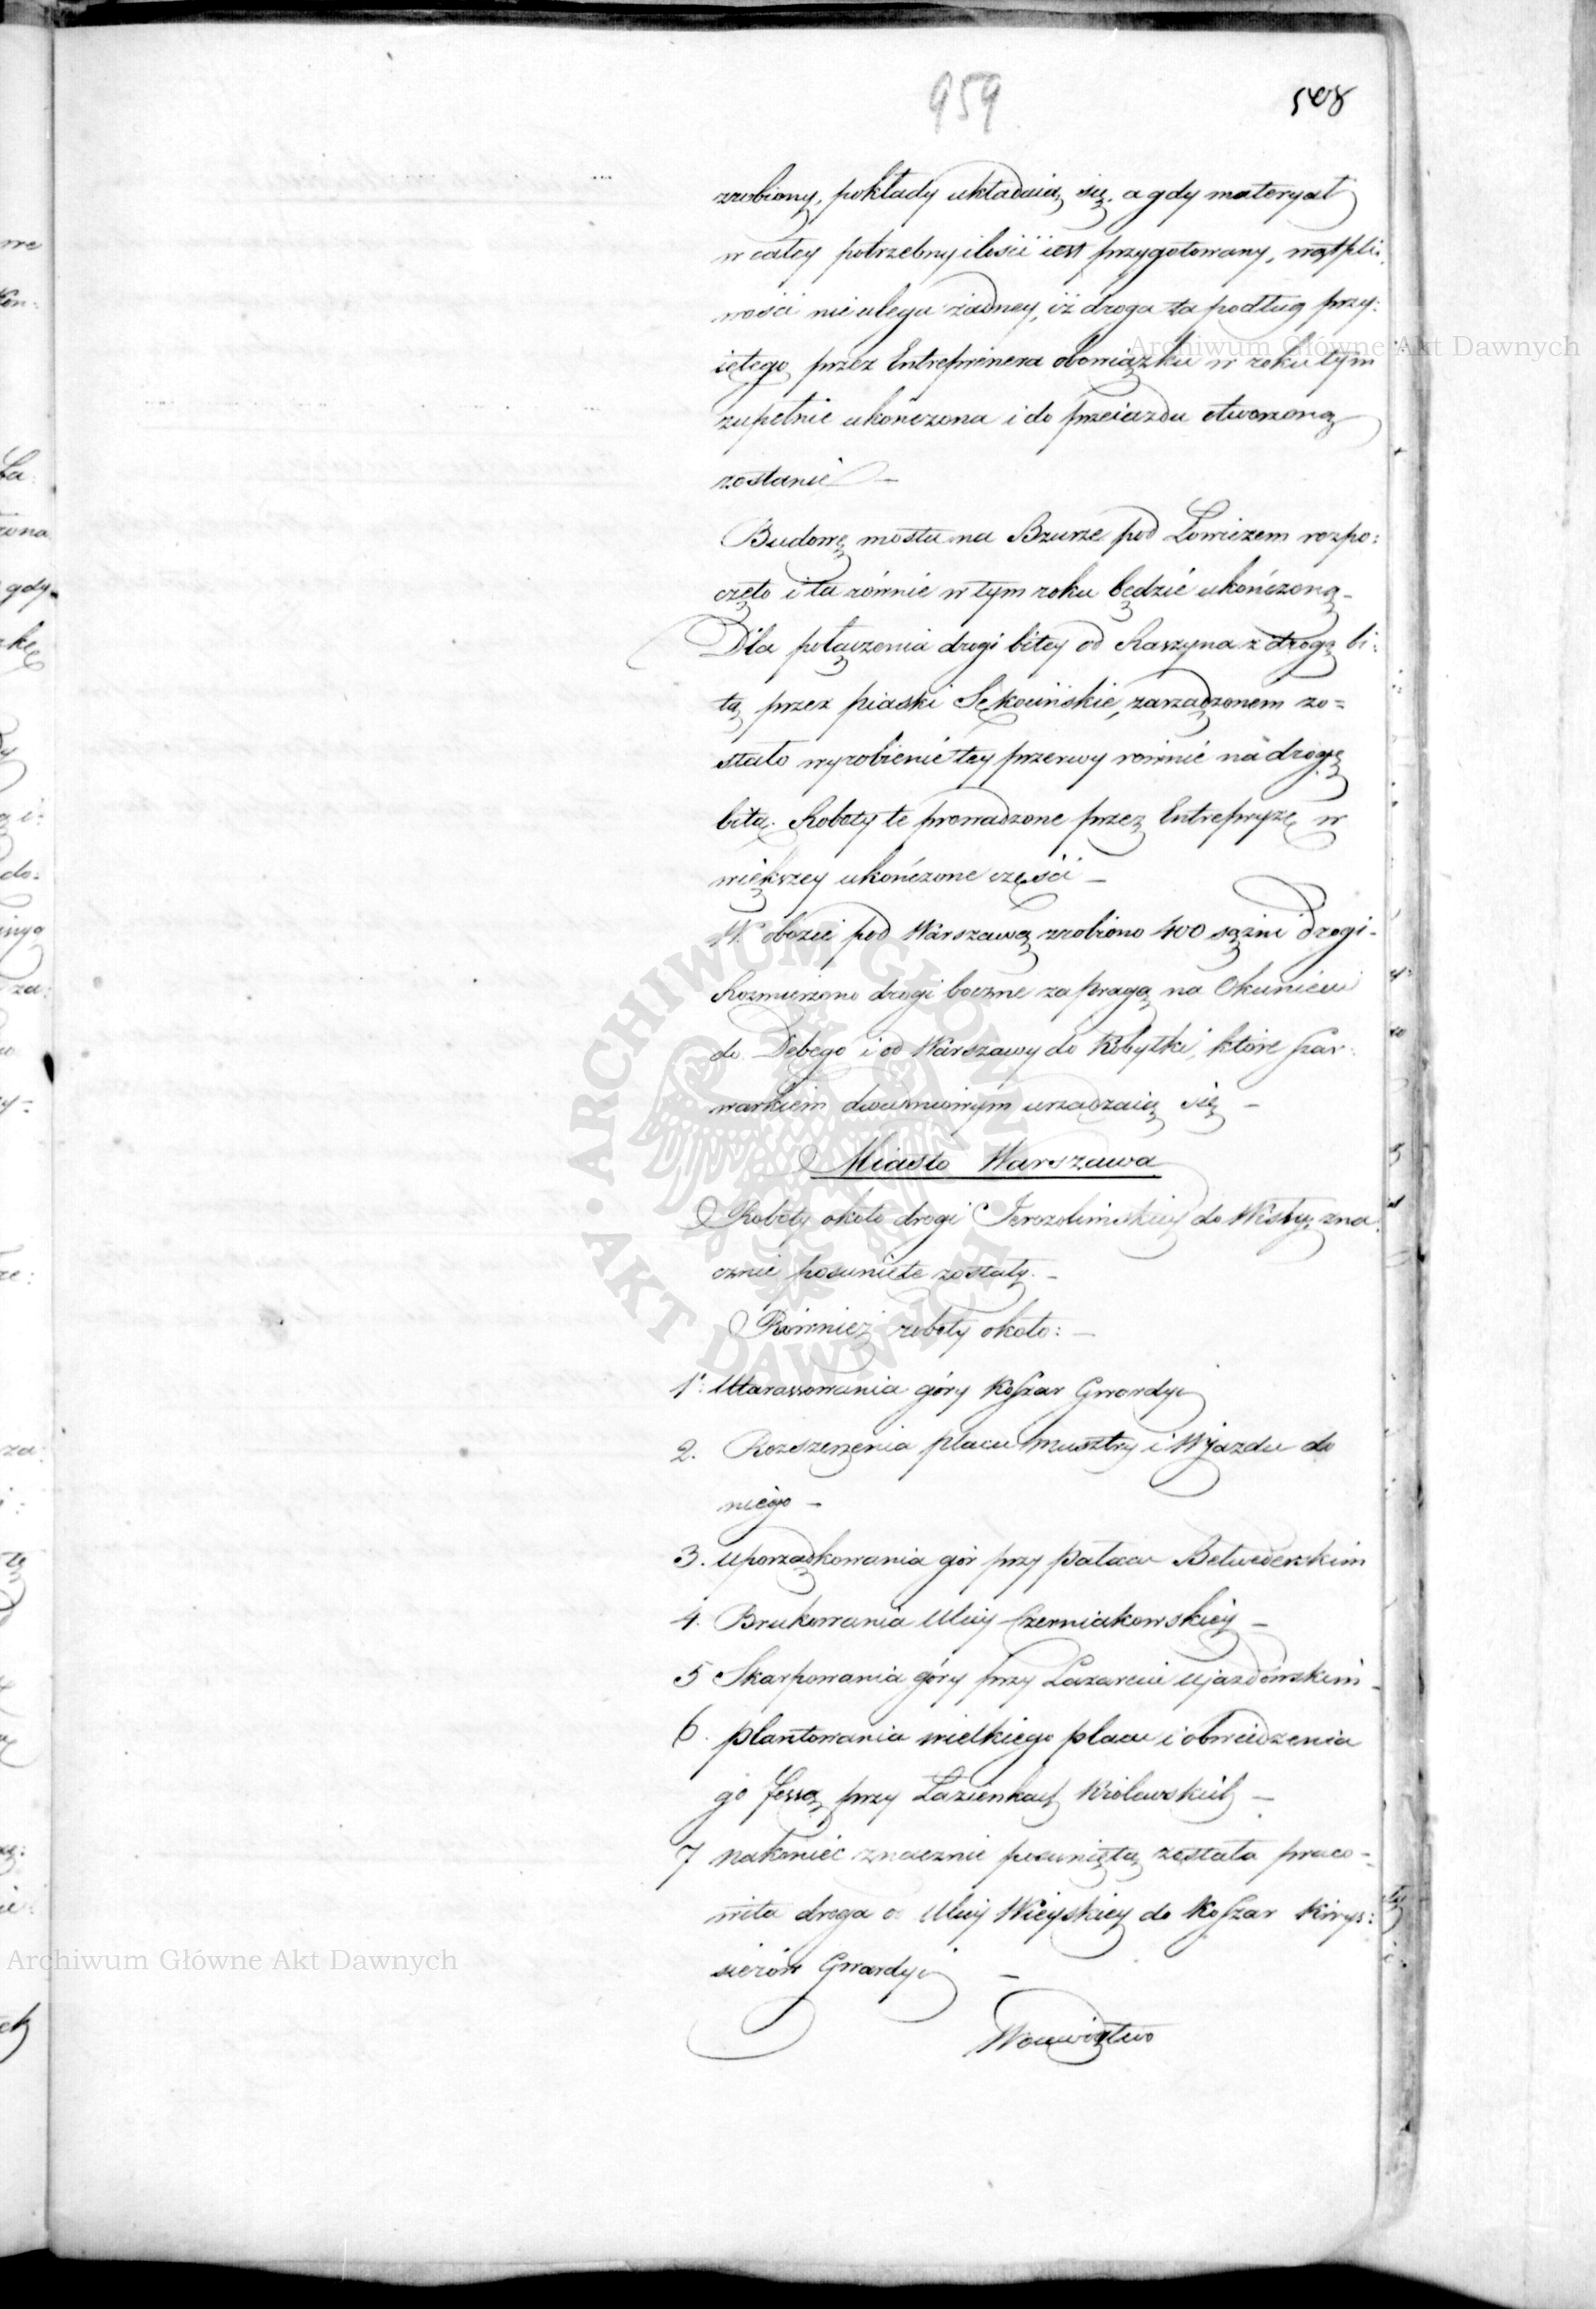 959
508
zrobiony, pokłady układaią się, a gdy materyał
w całey potrzebnyilości iest przygotowany, wątpli:
wości nie ulega żadney, iż droga ta podług przy:
iętego przez Entreprenera obowiązku w roku tym
zupełnie ukończona i do przeiazdu otworzoną
zostanie –
Budowę mostu na Bzurze pod Łowiczem rozpo:
częto i ta równie w tym roku będzie ukończoną –
Dla połączenia drogi bitey od Raszyna z drogą bi:
tą przez piaski Sękocińskie, zarządzonem zo=
stało wyrobienie tey przerwy równie na drogę
bitą. Roboty te prowadzone przez Entrepryzę w
większey ukończone części –
W obozie pod Warszawą zrobiono 400 sążni drogi –
Rozmierzono drogi boczne za Pragą na Okuniew
do Dębego i od Warszawy do Kobyłki, które szar:
warkiem dwudniowym urządzaią się –
Miasto Warszawa
Roboty około drogi Jerozolimskiey do Wisły, zna:
cznie posunięte zostały. –
Również roboty około: –
1. Utarassowania góry Koszar Gwardyi
2. Rozszerzenia placu musztry i Wjazdu do
niego –
3. uporządkowania gór przy Pałacu Belwederskim
4. Brukowania Ulicy Czerniakowskiey –
5 Skarpowania góry przy Lazarecie Ujazdowskim –
6. plantowania wielkiego placu i obwiedzenia
go fossą przy Łazienkach Królewskich –
7 nakoniec znacznie posuniętą została praco=
wita droga od Ulicy Wieyskiey do Koszar Kirys:
sierów Gwardyi –
Woiewództwo
Archiwum Główne Akt Dawnych
Archiwum Główne Akt Dawnych
ARCHIWUM GŁÓWNE · AKT DAWNYCH ·